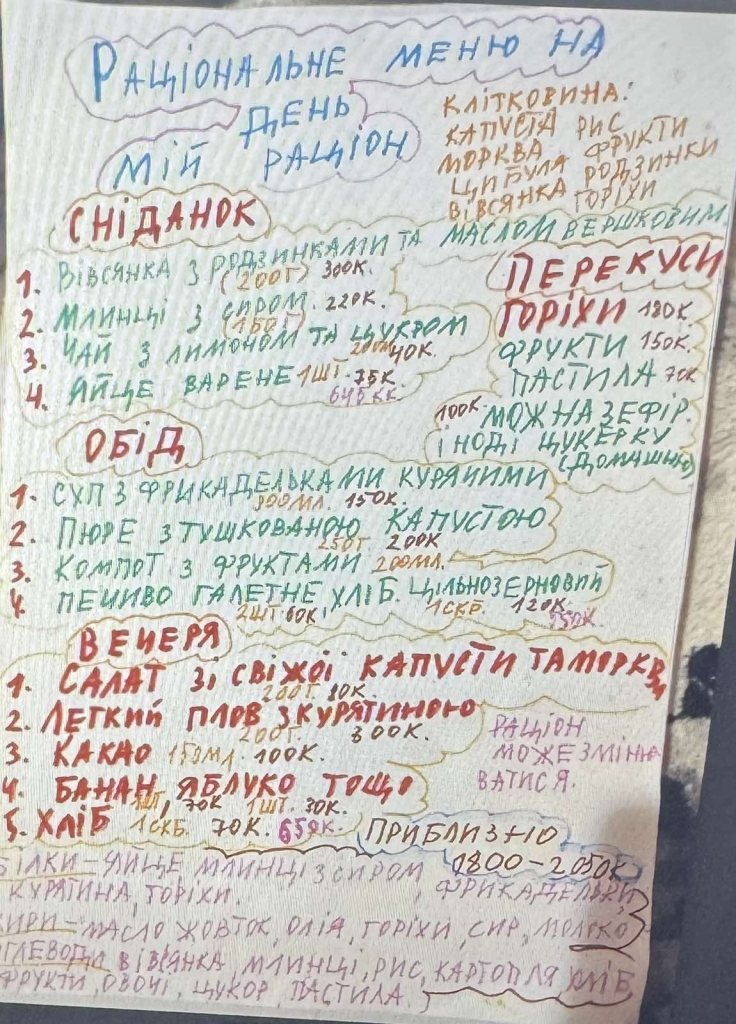 РАЦІОНАЛЬНЕ МЕНЮ НА
ДЕНЬ
МІЙ РАЦІОН
КЛІТКОВИНА:
КАПУСТА РИС
МОРКВА ФРУКТИ
ЦИБУЛЯ РОДЗИНКИ
ВІВСЯНКА ГОРІХИ
СНІДАНОК
1. ВІВСЯНКА З РОДЗИНКАМИ ТА МАСЛОМ ВЕРШКОВИМ
(200Г) 300К.
2. МЛИНЦІ З СИРОМ. 220К.
(150Г)
3. ЧАЙ З ЛИМОНОМ ТА ЦУКРОМ
200МЛ 40К.
4. ЯЙЦЕ ВАРЕНЕ 1ШТ. 75К.
645КК.
ПЕРЕКУСИ
ГОРІХИ 180К.
ФРУКТИ 150К.
ПАСТИЛА 70К
100К МОЖНА ЗЕФІР.
ІНОДІ ЦУКЕРКУ
(ДОМАШНЮ)
ОБІД
1. СУП З ФРИКАДЕЛЬКАМИ КУРЯЧИМИ
300МЛ. 150К.
2. ПЮРЕ З ТУШКОВАНОЮ КАПУСТОЮ
250Г. 200К
3. КОМПОТ З ФРУКТАМИ 200МЛ.
4. ПЕЧИВО ГАЛЕТНЕ ХЛІБ. ЦІЛЬНОЗЕРНОВИЙ
2ШТ 60К, 1СКБ. 120К.
550К.
ВЕЧЕРЯ
1. САЛАТ ЗІ СВІЖОЇ КАПУСТИ ТА МОРКВИ
200Г. 80К.
2. ЛЕГКИЙ ПЛОВ З КУРЯТИНОЮ
200Г. 300К.
3. КАКАО 150МЛ. 100К.
4. БАНАН, ЯБЛУКО ТОЩО
1ШТ, 70К 1ШТ. 30К.
5. ХЛІБ 1СКБ. 70К. 650К.
РАЦІОН
МОЖЕ ЗМІНЮ
ВАТИСЯ.
ПРИБЛИЗНО
1800-2050К
БІЛКИ - ЯЙЦЕ МЛИНЦІ З СИРОМ ФРИКАДЕЛЬКИ,
КУРЯТИНА, ГОРІХИ.
ЖИРИ - МАСЛО ЖОВТОК, ОЛІЯ, ГОРІХИ, СИР, МОЛОКО
ВУГЛЕВОДИ ВІВСЯНКА МЛИНЦІ, РИС, КАРТОПЛЯ ХЛІБ
ФРУКТИ, ОВОЧІ, ЦУКОР, ПАСТИЛА.